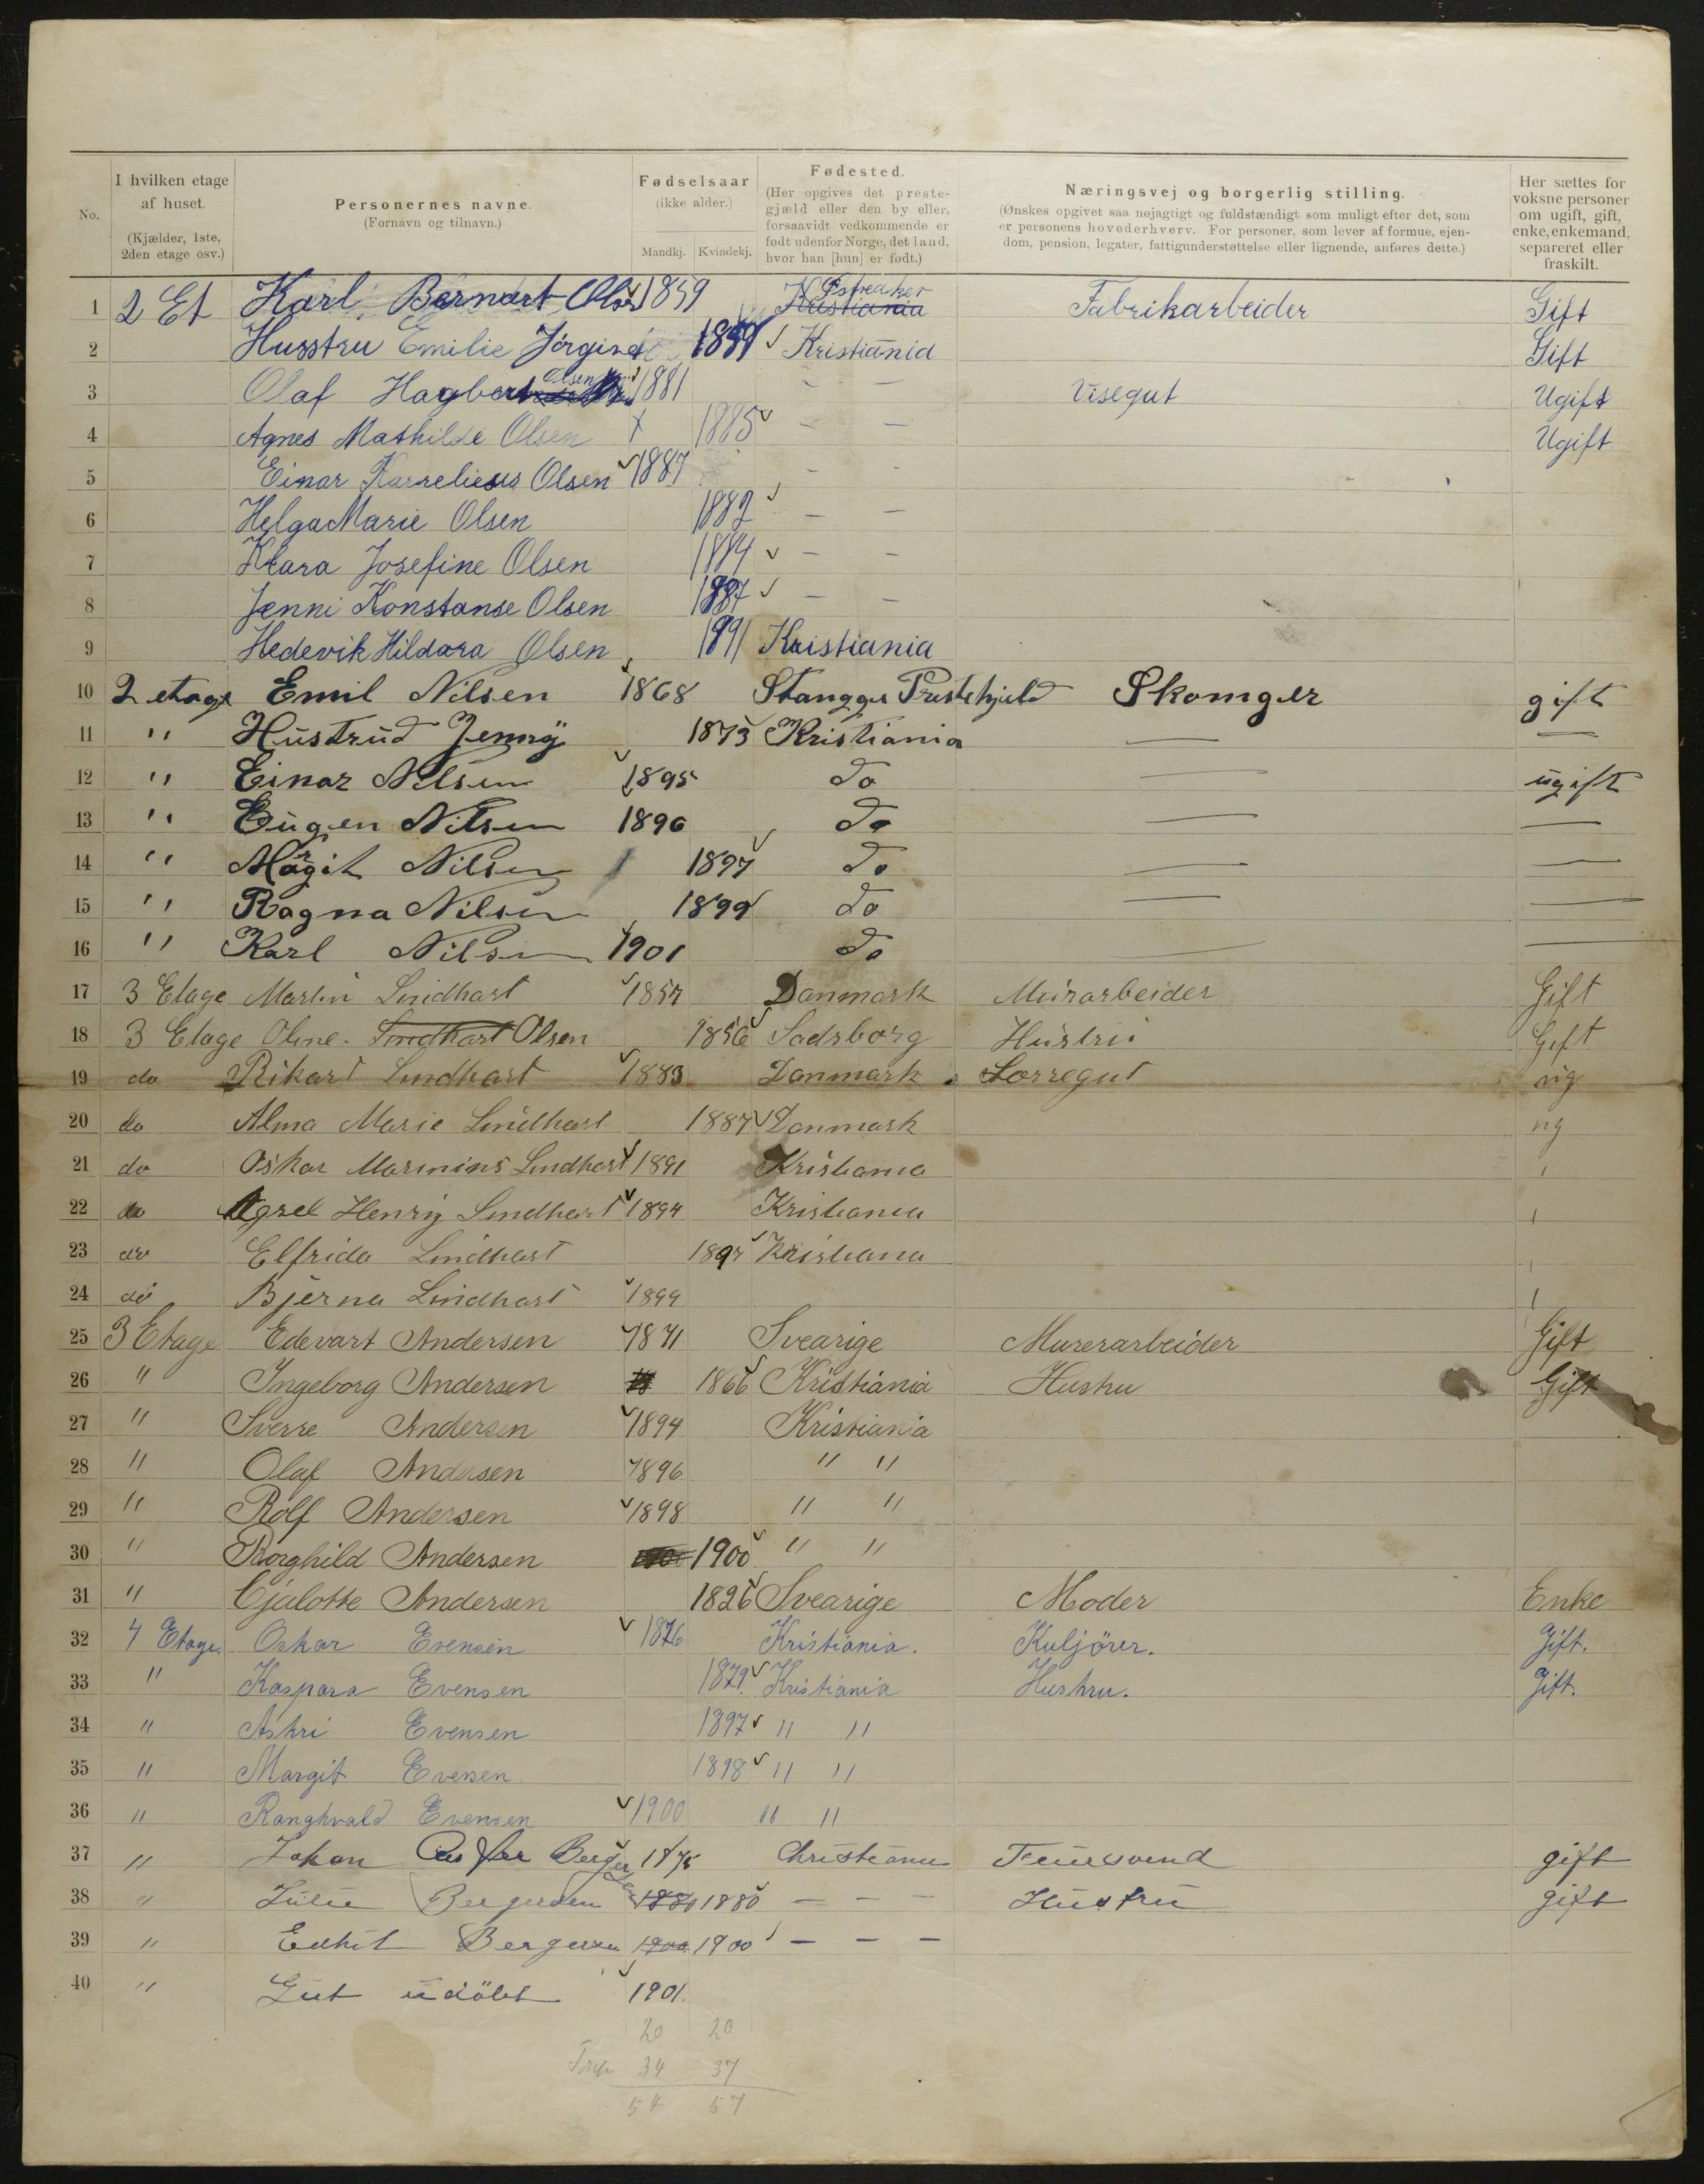 No. I hvilken etage af huset. (Kjælder, 1ste, 2den etage osv.) Personernes navne. (Fornavn og tilnavn.) Fødselsaar (ikke alder.) Mandkj. Kvindekj. Fødested. (Her opgives det prestegjæld eller den by eller, forsaavidt vedkommende er født udenfor Norge, det land, hvor han [hun] er født.) Næringsvej og borgerlig stilling. (Ønskes opgivet saa nøjagtigt og fuldstændigt som muligt efter det, som er personens hovederhverv. For personer, som lever af formue, ejendom, pension, legater, fattigunderstøttelse eller lignende, anføres dette.) Her sættes for voksne personer om ugift, gift, enke, enkemand, separeret eller fraskilt.
1 2 Et Karl Bernart Olsen 1859 Kristiania Østreaker Fabrikarbeider Gift
2 Husstru Emilie Jørgine Kristianid Gift
3 Olaf Hagbart Olsen 1881 – – Visegut Ugift
4 Agnes Mathilde Olsen 1885 – – Ugift
5 Einar Olsen 1887 – –
6 Helga Marie Olsen 1882 – –
7 Klara Josefine Olsen 1884 – –
8 Jenni Konstanse Olsen 1887 – –
9 Hedevik Hildara Olsen 1891 Kristiania
10 2 etage Emil Nilsen 1868 Stangges Skomger gift
11 " Hustrud Jenny 1873 Kristiania — —
12 " Einar Nilsen 1895 do — ugift
13 " Eugen Nilsen 1896 do — —
14 " Margit Nilsen 1897 do — —
15 " Ragna Nilsen 1899 do — —
16 " Karl Nilsen 1901 do — —
17 3 Etage Martin Lindhart 1857 Danmark Murarbeider Gift
18 3 Etage Oline Lindhart Olsen 1856 Sadsborg Hustru Gift
19 do Rikart Lindhart 1883 Danmark Lørregut ug
20 do Alma Marie Lindhart 1887 Danmark ug
21 do Oskar Marinius Lindhart 1891 Kristiania
22 do Agsel Henrig Lindhart 1894 Kristiania
23 do Elfrida Lindhart 1897 Kristiana
24 do Bjerna Lindhart 1899
25 3 Etage Edevart Andersen 1871 Svearige Murerarbeider Gift
26 " Ingeborg Andersen 1866 Kristiania Hustru Gift
27 " Sverre Andersen 1894 Kristiania
28 " Olaf Andersen 1896 " "
29 " Rolf Andersen 1898 " "
30 " Borghild Andersen 1900 " "
31 " Cjalotte Andersen 1826 Svearige Moder Enke
32 4 Etage. Oskar Evensen 1876 Kristiania. Kuljörer. Gift.
33 " Kaspara Evensen 1879. Kristiania Hustru. Gift.
34 " Astri Evensen 1897 " "
35 " Margit Evensen 1898 " "
36 " Ranghvald Evensen 1900 " "
37 " Johan Bergersen 1875 Christiania gift
38 " Julie Bergersen 1880 1880 – – – Hustru gift
39 " Edhit Bergersen 1900 1900 – – –
40 " Gut udöbt 1901.
20 20
34 37
54 57